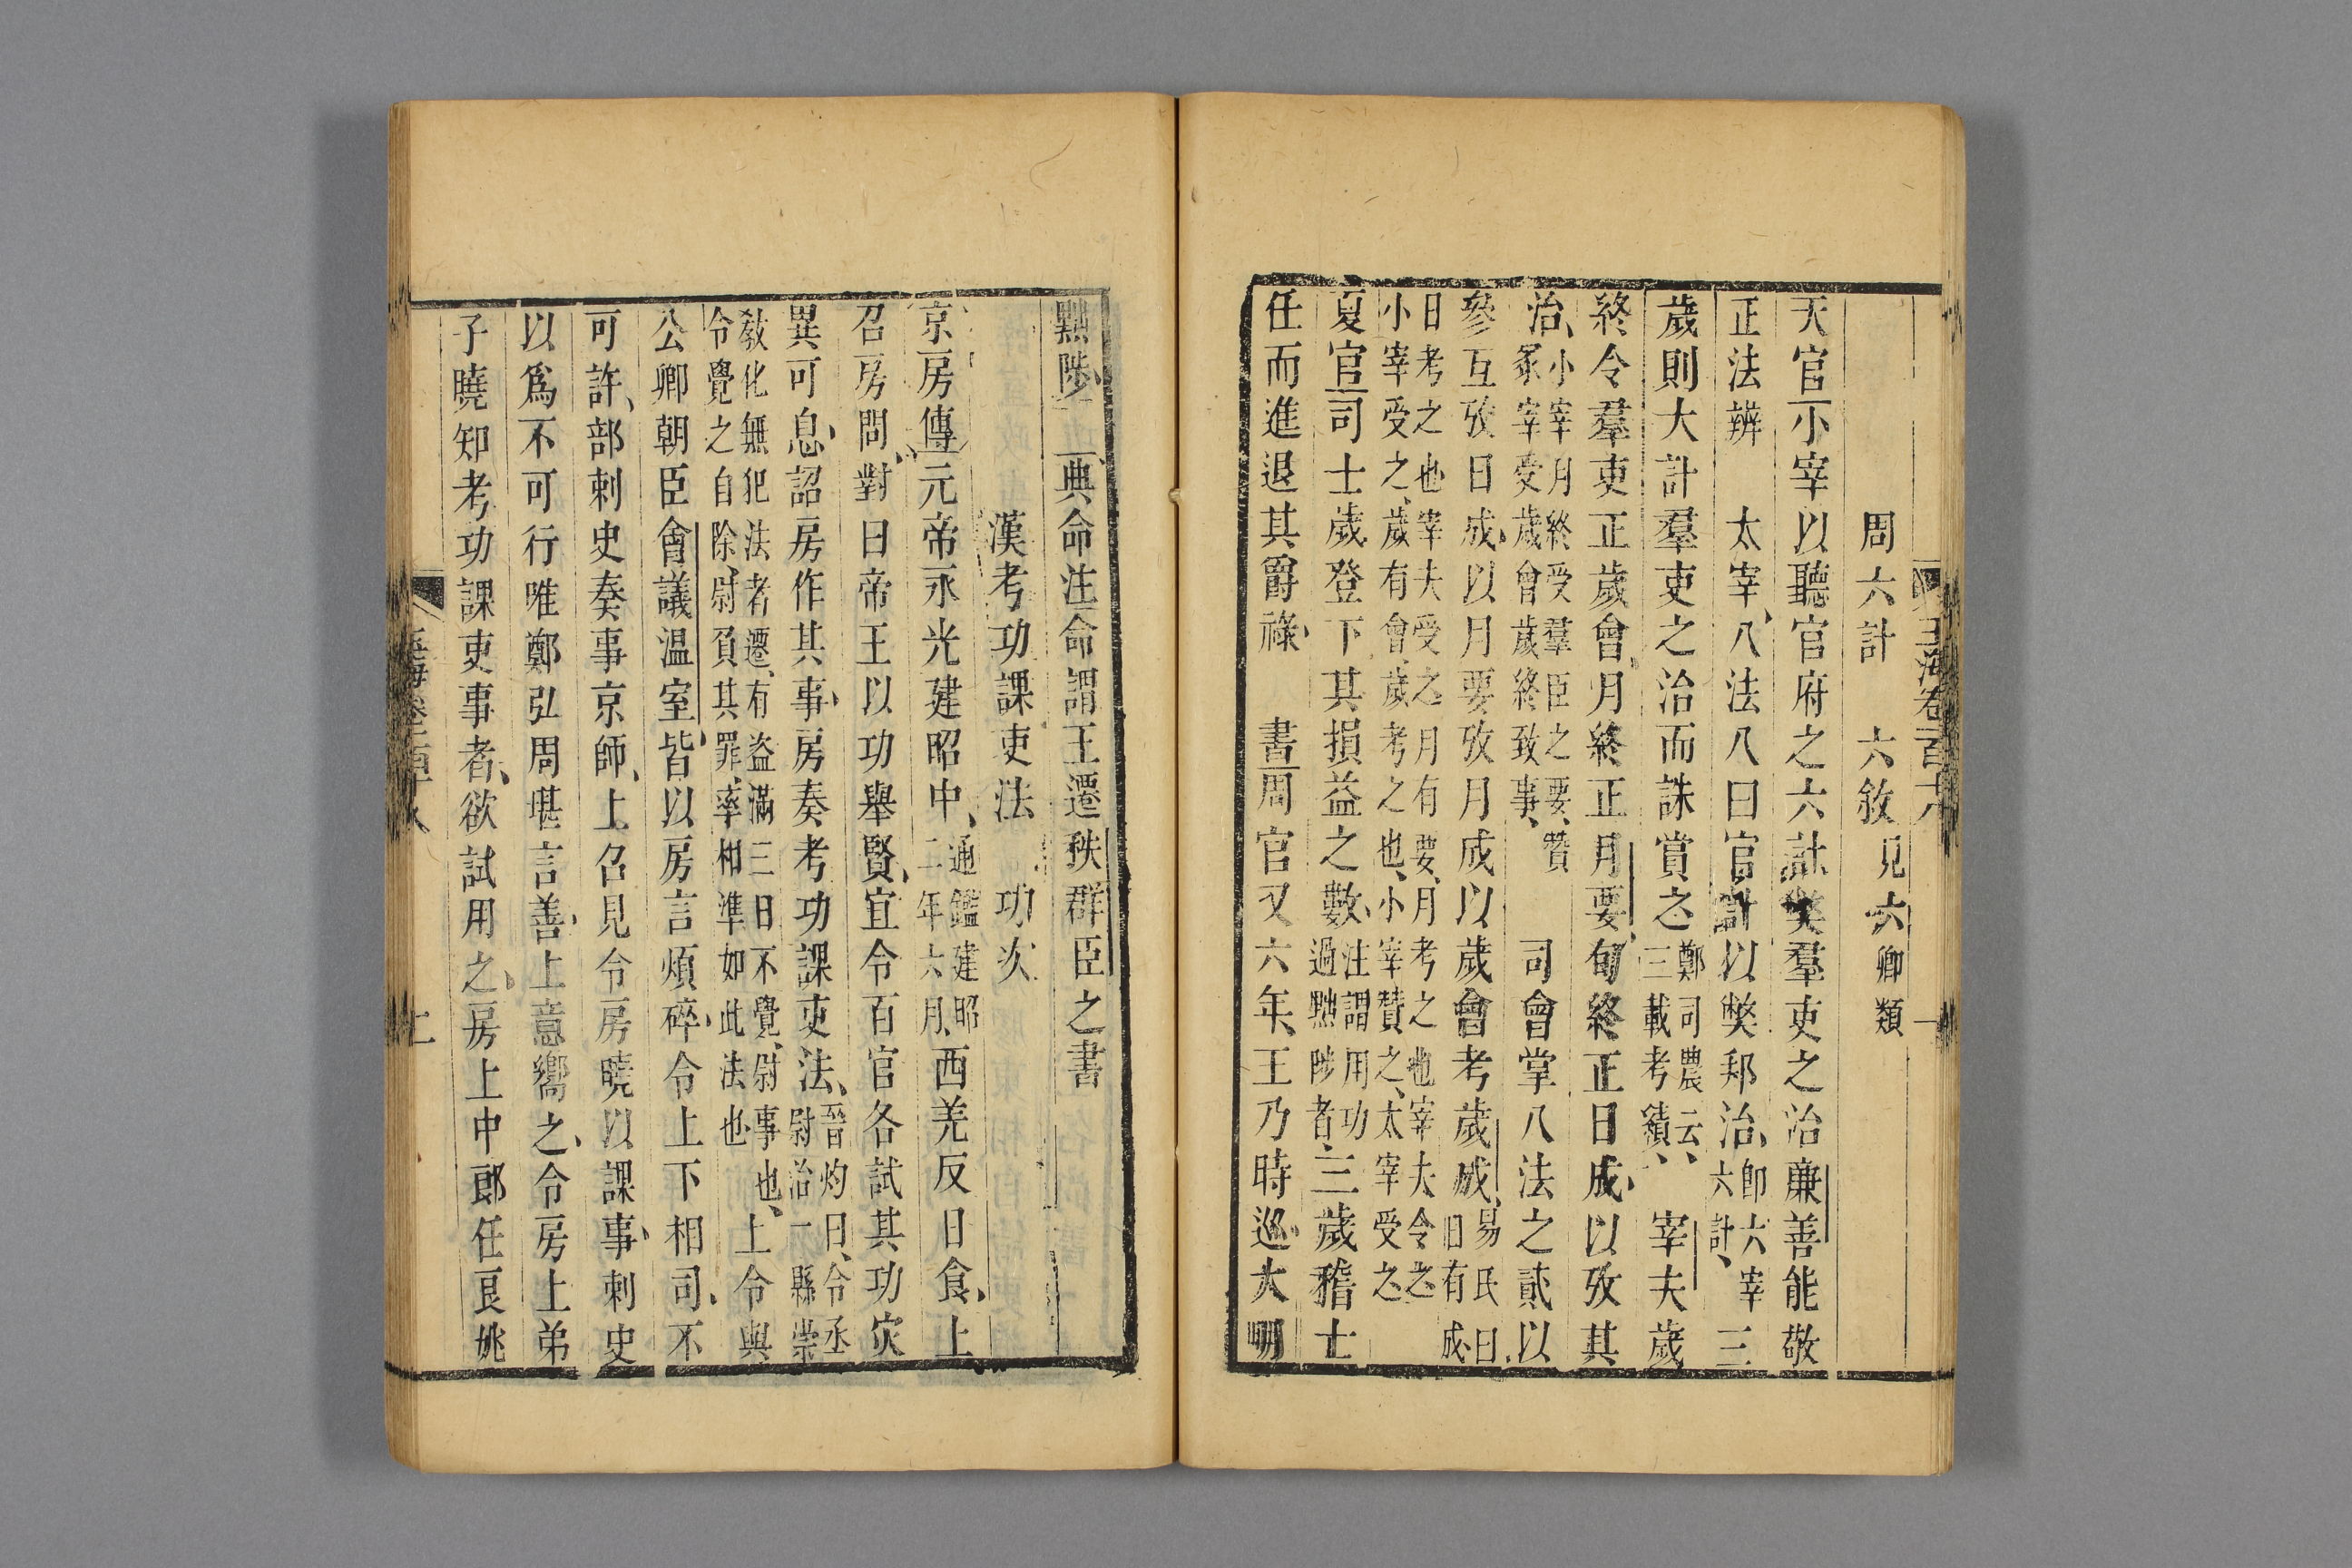 玉海卷一百十八
周六計　六敘見六卿類
天官小宰以聽官府之六計弊羣吏之治廉善能敬
正法辨　太宰八法八曰官計以弊邦治卽六宰六計三
歲則大計羣吏之治而誅賞之鄭司農云三載考績　宰夫歲
終令羣吏正歲會月終正月要旬終正日成以攷其
治小宰月終受羣臣之要贊冢宰受歲會歲終致事　司會掌八法之貳以
參互攷日成以月要攷月成以歲會考歲成易氏曰日有成
日考之也宰夫受之月有要月考之也宰夫令之
小宰受之歲有會歲考之也小宰贊之太宰受之
夏官司士歲登下其損益之數注謂用功過黜陟者三歲稽士
任而進退其爵祿　書周官又六年王乃時巡大明
黜陟　典命注命謂王遷秩群臣之書
漢考功課吏法　功次
京房傳元帝永光建昭中通鑑建昭二年六月西羌反日食上
召房問對曰帝王以功舉賢宜令百官各試其功灾
異可息詔房作其事房奏考功課吏法晉灼曰令丞尉治一縣崇
教化無犯法者遷有盜滿三日不覺尉事也
令覺之自除尉負其罪率相準如此法也上令與
公卿朝臣會議温室皆以房言煩碎令上下相司不
可許部刺史奏事京師上召見令房曉以課事刺史
以爲不可行唯鄭弘周堪言善上意嚮之令房上弟
子曉知考功課吏事者欲試用之房上中郎任良姚